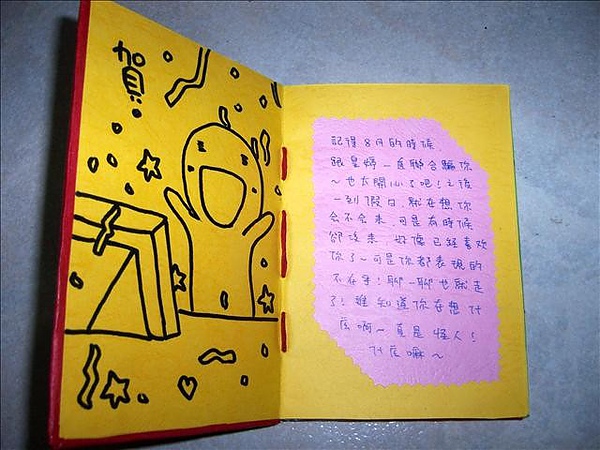 賀!!
記得8月的時候
跟星婷一起聯合騙你
～也太開心了吧！之後
一到假日，就在想你
會不會來，可是有時候
卻沒來，好像已經喜歡
你了～可是你都表現的
不在乎！聊一聊也就走
了！誰知道你在想什
麼啊～真是怪人！
什麼嘛～